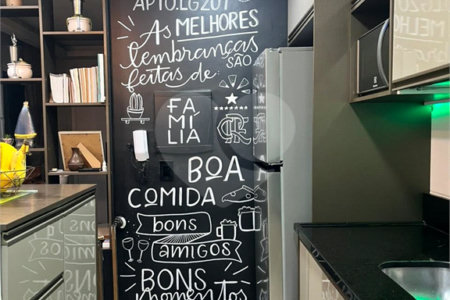 APTO.LG207
AS MELHORES
lembranças
SÃO
feitas de:
FA
MÍ
LIA
CRF
BOA
COMIDA
bons
amigos
BONS
momentos